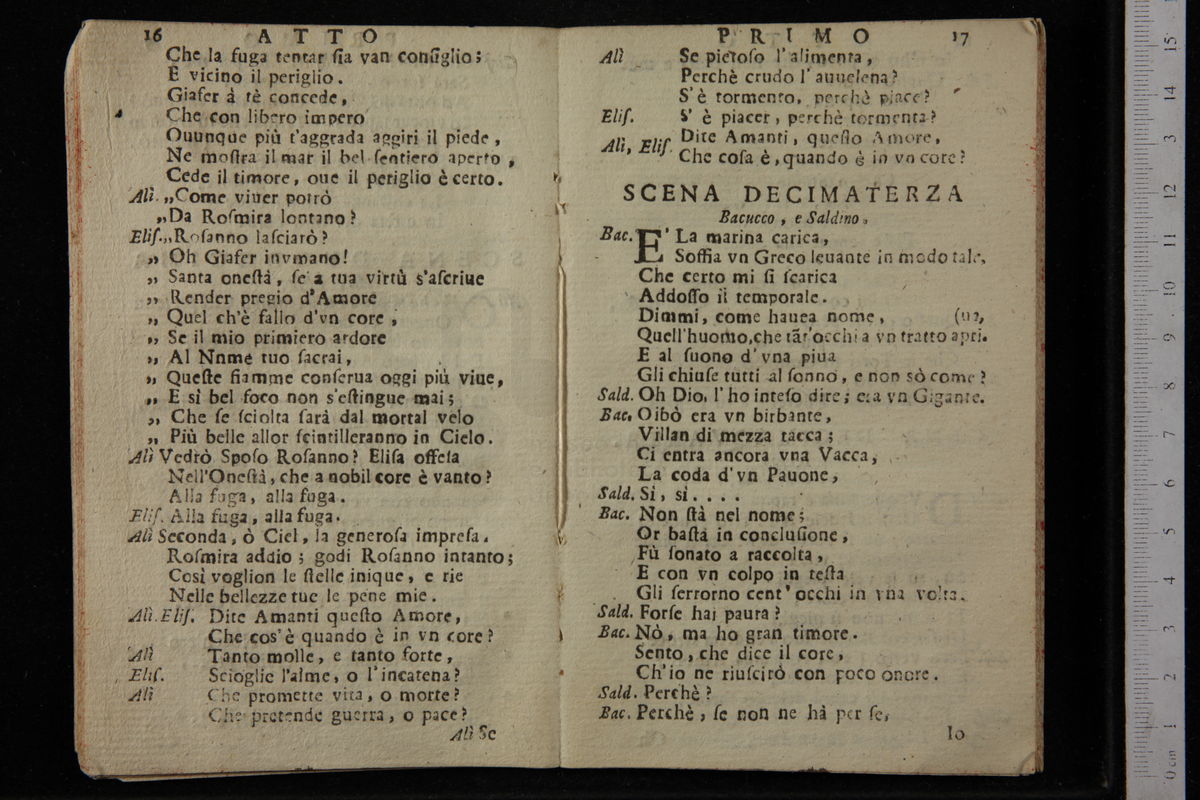 16 ATTO
Che la fuga tentar ſia van conſiglio;
E vicino il periglio.
Giafer à tè concede,
Che con libero impero
Ouunque più t'aggrada aggiri il piede,
Ne moſtra il mar il bel ſentiero aperto,
Cede il timore, oue il periglio è certo.
Alì. „Come viuer potrò
„Da Roſmira lontano?
Eliſ. „Roſanno laſciarò?
„ Oh Giafer invmano!
„ Santa oneſtà, ſe a tua virtù s'aſcriue
„ Render pregio d'Amore
„ Quel ch'è fallo d'vn core,
„ Se il mio primiero ardore
„ Al Nnme tuo ſacrai,
„ Queſte fiamme conſerua oggi più viue,
„ E sì bel foco non s'eſtingue mai;
„ Che ſe ſciolta ſarà dal mortal velo
„ Più belle allor ſcintilleranno in Cielo.
Alì Vedrò Spoſo Roſanno? Eliſa offeſa
Nell'Oneſtà, che a nobil core è vanto?
Alla fuga, alla fuga.
Eliſ. Alla fuga, alla fuga.
Alì Seconda, ò Ciel, la generoſa impreſa.
Roſmira addio; godi Roſanno intanto;
Così voglion le ſtelle inique, e rie
Nelle bellezze tue le pene mie.
Alì. Eliſ. Dite Amanti queſto Amore,
Che cos'è quando è in vn core?
Alì Tanto molle, e tanto forte,
Eliſ. Scioglie l'alme, o l'incatena?
Alì Che promette vita, o morte?
Che pretende guerra, o pace?
Alì Se
PRIMO 17
Alì Se pietoſo l'alimenta,
Perchè crudo l'auuelena?
S'è tormento, perchè piace?
Eliſ. S' è piacer, perchè tormenta?
Alì, Eliſ. Dite Amanti, queſto Amore,
Che coſa è, quando è in vn core?
SCENA DECIMATERZA
Bacucco, e Saldino.
Bac. E' La marina carica,
Soffia vn Greco leuante in modo tale,
Che certo mi ſi ſcarica
Addoſſo il temporale.
Dimmi, come hauea nome, (ua,
Quell'huomo, che tāt'occhi a vn tratto apri.
E al ſuono d'vna piua
Gli chiuſe tutti al ſonno, e non sò come?
Sald. Oh Dio, l'ho inteſo dire; era vn Gigante.
Bac. Oibò era vn birbante,
Villan di mezza tacca;
Ci entra ancora vna Vacca,
La coda d'vn Pauone,
Sald. Sì, sì. . . .
Bac. Non ſtà nel nome;
Or baſta in concluſione,
Fù ſonato a raccolta,
E con vn colpo in teſta
Gli ſerrorno cent' occhi in vna volta.
Sald. Forſe hai paura?
Bac. Nò, ma ho gran timore.
Sento, che dice il core,
Ch'io ne riuſcirò con poco onore.
Sald. Perchè?
Bac. Perchè, ſe non ne hà per ſe,
Io
15
14
13
12
11
10
9
8
7
6
5
4
3
2
1
0 cm